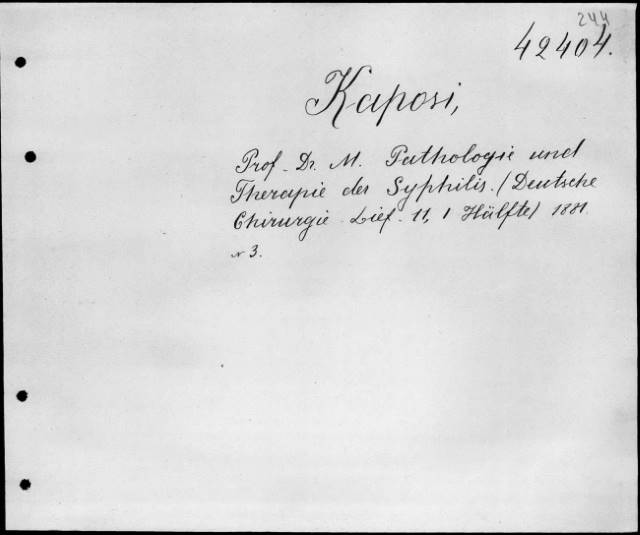 244
42404.
Kaposi,
Prof. Dr. M. Pathologie und
Therapie der Syphilis. (Deutsche
Chirurgie Lief. 11, 1 Hälfte) 1881.
N 3.